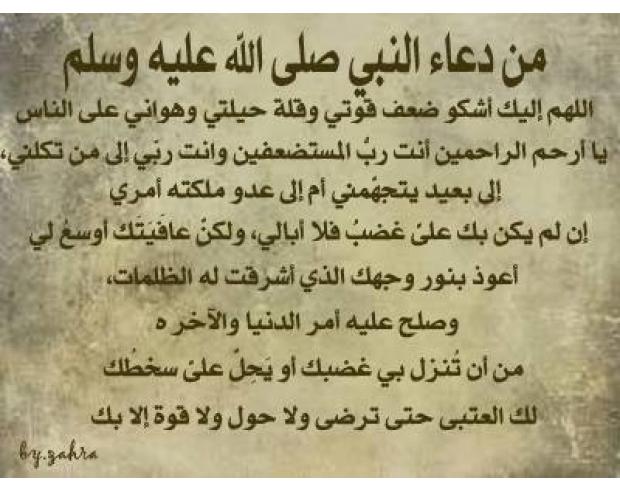 من دعاء النبي صلى الله عليه وسلم
اللهم إليك أشكو ضعف قوتي وقلة حيلتي وهواني على الناس
يا أرحم الراحمين أنت ربُّ المستضعفين وانت ربّي إلى من تكلني،
إلى بعيد يتجهّمني أم إلى عدو ملكته أمري
إن لم يكن بك عليّ غضبُ فلا أبالي، ولكنْ عافَيَتَك أوسعُ لي
أعوذ بنور وجهك الذي أشرقت له الظلمات،
وصلح عليه أمر الدنيا والآخر ه
من أن تُنزل بي غضبك أو يَحِلّ عليّ سخطُك
لك العتبى حتى ترضى ولا حول ولا قوة إلا بك
by.zahra